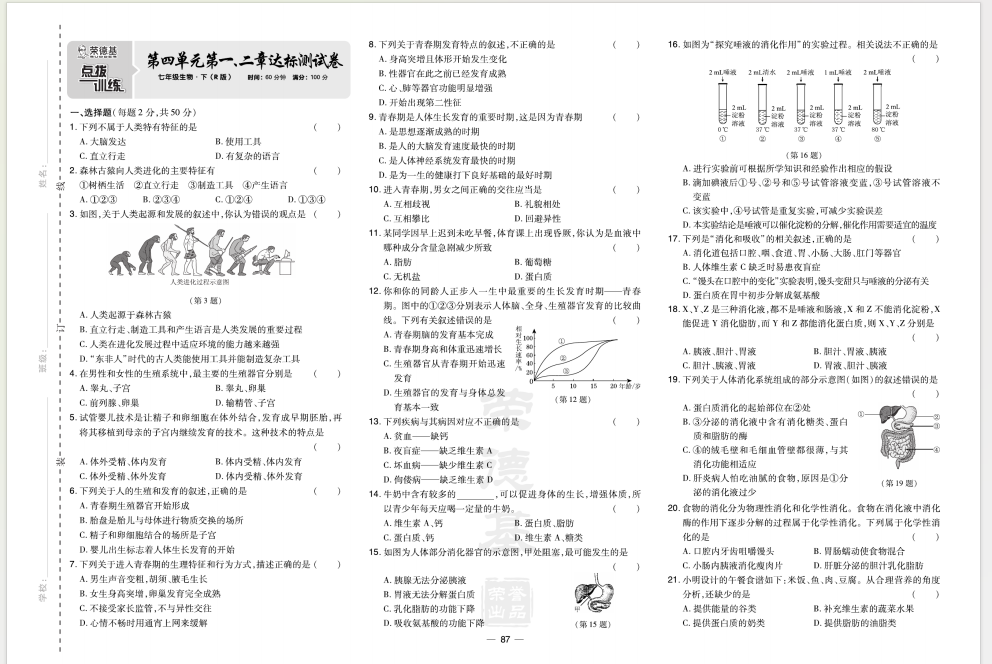 学校:
班级:
姓名:
装
订
线
荣德基
点拨
训练
第四单元第一、二章达标测试卷
七年级生物·下(R版) 时间:60分钟 满分:100分
一、选择题(每题2分,共50分)
1.下列不属于人类特有特征的是 ( )
A.大脑发达 B.使用工具
C.直立行走 D.有复杂的语言
2.森林古猿向人类进化的主要特征有 ( )
①树栖生活 ②直立行走 ③制造工具 ④产生语言
A.①②③ B.②③④ C.①②④ D.①③④
3.如图,关于人类起源和发展的叙述中,你认为错误的观点是 ( )
人类进化过程示意图
(第3题)
A.人类起源于森林古猿
B.直立行走、制造工具和产生语言是人类发展的重要过程
C.人类在进化发展过程中适应环境的能力越来越强
D.“东非人”时代的古人类能使用工具并能制造复杂工具
4.在男性和女性的生殖系统中,最主要的生殖器官分别是 ( )
A.睾丸、子宫 B.睾丸、卵巢
C.前列腺、卵巢 D.输精管、子宫
5.试管婴儿技术是让精子和卵细胞在体外结合,发育成早期胚胎,再
将其移植到母亲的子宫内继续发育的技术。这种技术的特点是
( )
A.体外受精、体内发育 B.体内受精、体内发育
C.体外受精、体外发育 D.体内受精、体外发育
6.下列关于人的生殖和发育的叙述,正确的是 ( )
A.青春期生殖器官开始形成
B.胎盘是胎儿与母体进行物质交换的场所
C.精子和卵细胞结合的场所是子宫
D.婴儿出生标志着人体生长发育的开始
7.下列关于进入青春期的生理特征和行为方式,描述正确的是 ( )
A.男生声音变粗,胡须、腋毛生长
B.女生身高突增,卵巢发育完全成熟
C.不接受家长监管,不与异性交往
D.心情不畅时用通宵上网来缓解
8.下列关于青春期发育特点的叙述,不正确的是 ( )
A.身高突增且体形开始发生变化
B.性器官在此之前已经发育成熟
C.心、肺等器官功能明显增强
D.开始出现第二性征
9.青春期是人体生长发育的重要时期,这是因为青春期 ( )
A.是思想逐渐成熟的时期
B.是人的大脑发育速度最快的时期
C.是人体神经系统发育最快的时期
D.是为一生的健康打下良好基础的最好时期
10.进入青春期,男女之间正确的交往应当是 ( )
A.互相歧视 B.礼貌相处
C.互相攀比 D.回避异性
11.某同学因早上迟到未吃早餐,体育课上出现昏厥,你认为是血液中
哪种成分含量急剧减少所致 ( )
A.脂肪 B.葡萄糖
C.无机盐 D.蛋白质
12.你和你的同龄人正步入一生中最重要的生长发育时期——青春
期。图中的①②③分别表示人体脑、全身、生殖器官发育的比较曲
线。下列有关叙述错误的是 ( )
A.青春期脑的发育基本完成
B.青春期身高和体重迅速增长
C.生殖器官从青春期开始迅速
发育
D.生殖器官的发育与身体总发
育基本一致
相对生长速率/%
100
80
60
40
20
0
5 10 15 20 年龄/岁
①
②
③
(第12题)
13.下列疾病与其病因对应不正确的是 ( )
A.贫血——缺钙
B.夜盲症——缺乏维生素A
C.坏血病——缺少维生素C
D.佝偻病——缺乏维生素D
14.牛奶中含有较多的______,可以促进身体的生长,增强体质,所
以青少年每天应喝一定量的牛奶。 ( )
A.维生素A、钙 B.蛋白质、脂肪
C.蛋白质、钙 D.维生素A、糖类
15.如图为人体部分消化器官的示意图,甲处阻塞,最可能发生的是
( )
A.胰腺无法分泌胰液
B.胃液无法分解蛋白质
C.乳化脂肪的功能下降
D.吸收氨基酸的功能下降
甲
(第15题)
荣德基
荣誉出品
— 87 —
16.如图为“探究唾液的消化作用”的实验过程。相关说法不正确的是
( )
2 mL唾液 2 mL清水 2 mL唾液 1 mL唾液 2 mL唾液
2 mL淀粉溶液 2 mL淀粉溶液 2 mL淀粉溶液 2 mL淀粉溶液 2 mL淀粉溶液
0℃ 37℃ 37℃ 37℃ 80℃
① ② ③ ④ ⑤
(第16题)
A.进行实验前可根据所学知识和经验作出相应的假设
B.滴加碘液后①号、②号和⑤号试管溶液变蓝,③号试管溶液不
变蓝
C.该实验中,④号试管是重复实验,可减少实验误差
D.本实验结论是唾液可以催化淀粉的分解,催化作用需要适宜的温度
17.下列是“消化和吸收”的相关叙述,正确的是 ( )
A.消化道包括口腔、咽、食道、胃、小肠、大肠、肛门等器官
B.人体维生素C缺乏时易患夜盲症
C.“馒头在口腔中的变化”实验表明,馒头变甜只与唾液的分泌有关
D.蛋白质在胃中初步分解成氨基酸
18.X、Y、Z是三种消化液,都不是唾液和肠液,X和Z不能消化淀粉,X
能促进Y消化脂肪,而Y和Z都能消化蛋白质,则X、Y、Z分别是
( )
A.胰液、胆汁、胃液 B.胆汁、胃液、胰液
C.胆汁、胰液、胃液 D.胃液、胆汁、胰液
19.下列关于人体消化系统组成的部分示意图(如图)的叙述错误的是
( )
A.蛋白质消化的起始部位在②处
B.③分泌的消化液中含有消化糖类、蛋白
质和脂肪的酶
C.④的绒毛壁和毛细血管壁都很薄,与其
消化功能相适应
D.肝炎病人怕吃油腻的食物,原因是①分
泌的消化液过少
①
②
③
④
(第19题)
20.食物的消化分为物理性消化和化学性消化。食物在消化液中消化
酶的作用下逐步分解的过程属于化学性消化。下列属于化学性消
化的是 ( )
A.口腔内牙齿咀嚼馒头 B.胃肠蠕动使食物混合
C.小肠内胰液消化瘦肉片 D.肝脏分泌的胆汁乳化脂肪
21.小明设计的午餐食谱如下:米饭、鱼、肉、豆腐。从合理营养的角度
分析,还缺少的是 ( )
A.提供能量的谷类 B.补充维生素的蔬菜水果
C.提供蛋白质的奶类 D.提供脂肪的油脂类